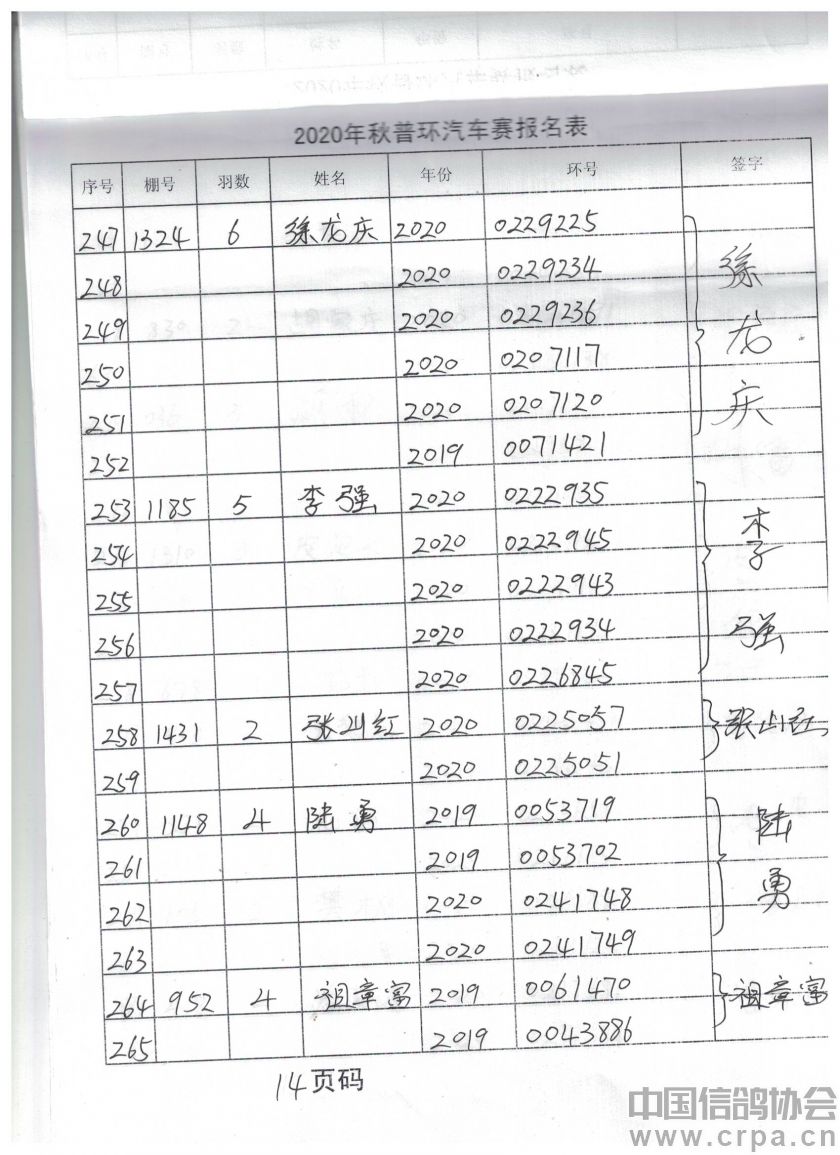 2020年秋普环汽车赛报名表
序号 棚号 羽数 姓名 年份 环号 签字
247 1324 6 徐龙庆 2020 0229225 徐龙庆
248 2020 0229234
249 2020 0229236
250 2020 0207117
251 2020 0207120
252 2019 0071421
253 1185 5 李强 2020 0222935 李强
254 2020 0222945
255 2020 0222943
256 2020 0222934
257 2020 0226845
258 1431 2 张山红 2020 0225057 张山红
259 2020 0225051
260 1148 4 陆勇 2019 0053719 陆勇
261 2019 0053702
262 2020 0241748
263 2020 0241749
264 952 4 祖章富 2019 0061470 祖章富
265 2019 0043886
14页码
中国信鸽协会
www.crpa.cn